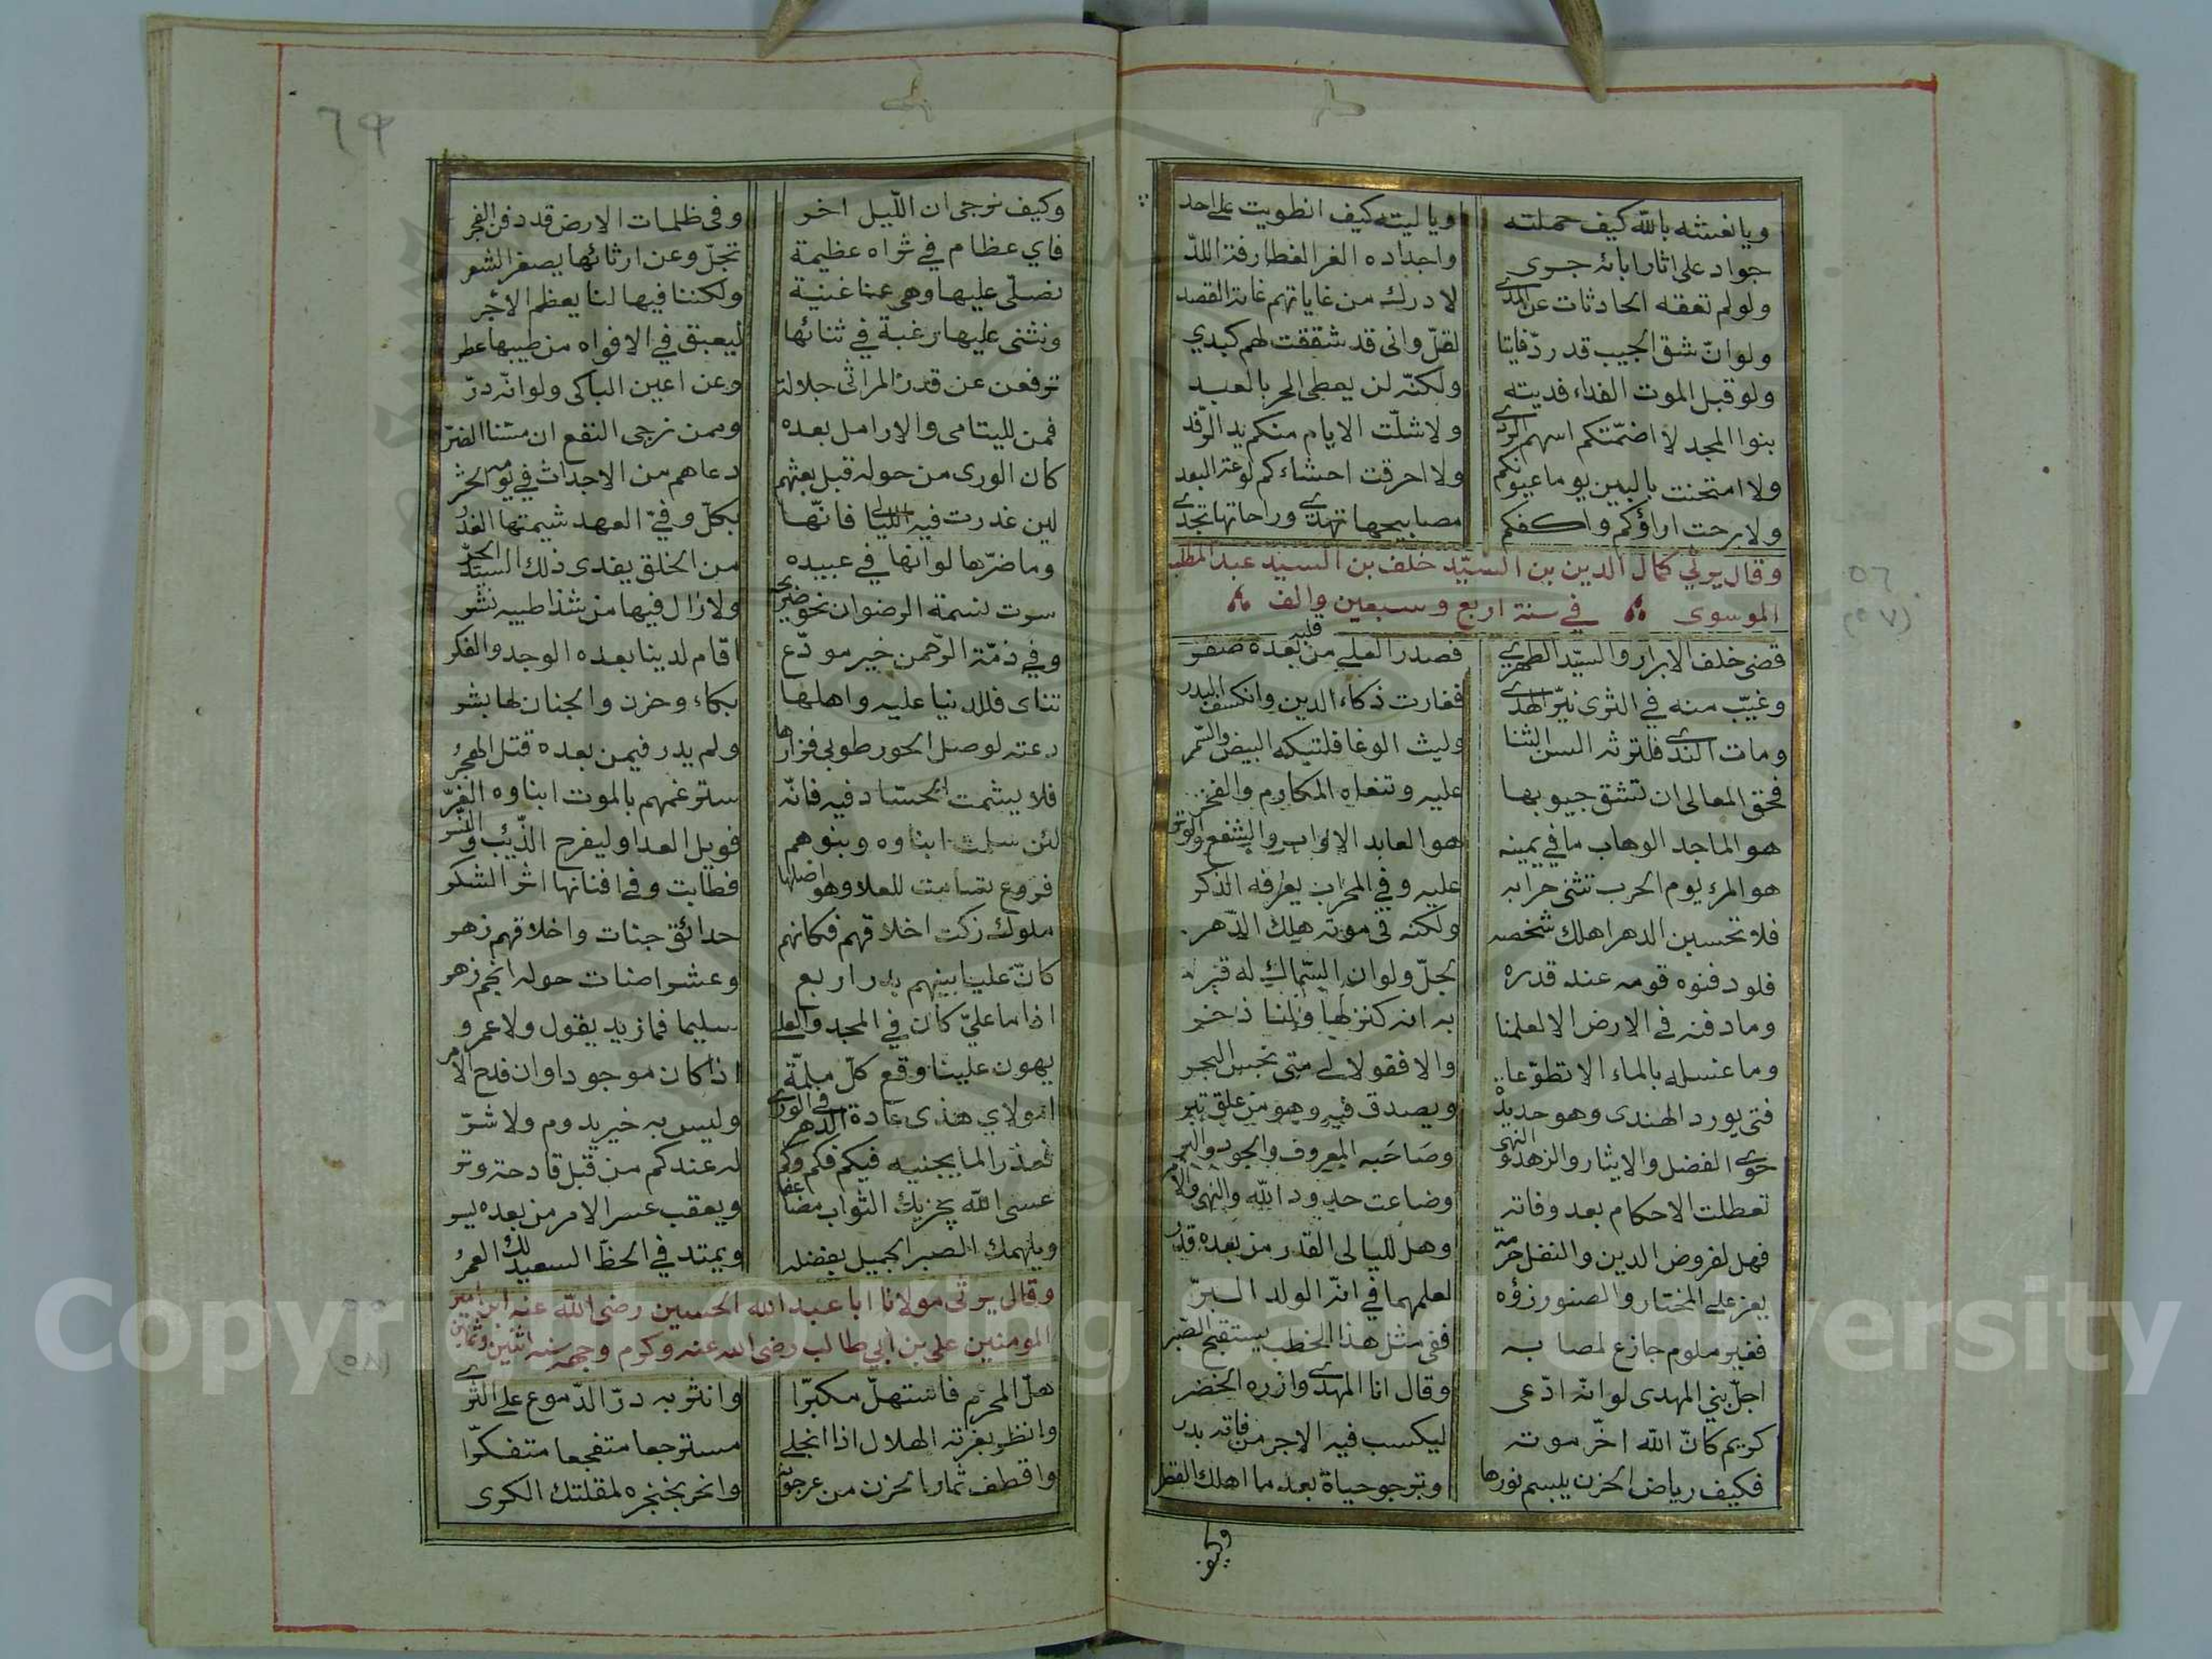 ويا نعشه بالله كيف حملته ويا ليته كيف انطويت على احد
جواد على اثار ابائه جرى واجداده الغر الغطارفة اللدّ
ولو لم تعقه الحادثات عن المدى لادرك من غاياتهم غاية القصد
ولو انّ شق الجيب قد ردّ فايتا لقلّ وانى قد شققت لهم كبدي
ولو قبل الموت الفداء فديته ولكنّه لن يعطى الحر بالعبد
بنوا المجد لا اضمّتكم اسهم الردى ولا شلّت الايام منكم يد الرّفد
ولا امتحنت بالبين يوما عيونكم ولا احرقت احشاءكم لوعة البعد
ولا برحت اراؤكم واكفكم مصابيحها تهدى وراحاتها تجدى
وقال يرثي كمال الدين بن السيّد خلف بن السيد عبد المطلب
الموسوى في سنة اربع وسبعين والف
قضى خلف الابرار والسيّد الطهر فصدر العلى من قلبه بعده صفر
وغيّب منه في الثرى نيّر الهدى فغارت ذكاء الدين وانكسف البدر
ومات الندى فلترثه السن الثنا وليث الوغا فلتبكه البيض والسّمر
فحق المعالى ان تشق جيوبها عليه وتنعاه المكارم والفخر
هو الماجد الوهاب ما في يمينه هو العابد الاواب والشفع والوتر
هو المرء يوم الحرب تثنى حرابه عليه وفي المحراب يعرفه الذكر
فلا تحسبن الدهر اهلك شخصه ولكنه في موته هلك الدّهر
فلو دفنوه قومه عند قدره لجلّ ولو ان السّماك له قبر
وما دفنه في الارض الا لعلمنا به انه كنز لها ولنا ذخر
وما غسله بالماء الا تطوّعا والا فقولا لى متى نجس البحر
فتى يورد الهندى وهو حديدة ويصدق فيه وهو من علق تبر
حوى الفضل والايثار والزهد والنهى وصاحبه المعروف والجود والبر
تعطلت الاحكام بعد وفاته وضاعت حدود الله والنهى والامر
فهل لفروض الدين والنفل حرمة وهل لليالى القدر من بعده قدر
يعز على المختار والصنو رزؤه لعلمهما في انّه الولد البرّ
فغير ملوم جازع لمصابه ففى مثل هذا الخطب يستقبح الصّبر
اجلّ بني المهدى لو انّه ادّعى وقال انا المهدى وازره الخضر
كريم كانّ الله اخّر موته ليكسب فيه الاجر من فاته بدر
فكيف رياض الحزن يبسم نورها وترجو حياة بعد ما اهلك القطر
وكيف
٦٩
وكيف نرجى ان اللّيل اخر وفى ظلمات الارض قد دفن الفجر
فاي عظام في ثراه عظيمة تجلّ وعن ارثائها يصغر الشعر
نصلّى عليها وهى عنا غنية ولكننا فيها لنا يعظم الاجر
ونثنى عليها رغبة في ثنائها ليعبق في الافواه من طيبها عطر
ترفعن عن قدر المراثى جلالة وعن اعين الباكى ولو انّه درّ
فمن لليتامى والارامل بعده وممن نرجى النفع ان مسّنا الضرّ
كان الورى من حوله قبل بعثهم دعاهم من الاجداث في يومه الحشر
لين غدرت فيه الليالى فانّها بكلّ وفيّ العهد شيمتها الغدر
وما ضرّها لو انها في عبيده من الخلق يفدى ذلك السيّد الحرّ
سرت نسمة الرضوان نحو ضريحه ولا زال فيها من شذا طيبه نشر
وفي ذمّة الرّحمن خير مودّع اقام لدينا بعده الوجد والفكر
تناى فللدنيا عليه واهلها بكاء وحزن والجنان لها بشر
دعته لوصل الحور طوبى فزارها ولم يدر فيمن بعده قتل الهجر
فلا يشمت الحسّاد فيه فانّه سترغمهم بالموت ابناوه الغرّ
لئن سلمت ابناوه وبنوهم فويل العدا وليفرح الذّئب والنسر
فروع تسامت للعلا وهو اصلها فطابت وفى افنانها اثر الشكر
ملوك زكت اخلاقهم فكانهم حدائق جنات واخلاقهم زهر
كانّ عليا بينهم بدر اربع وعشر اضات حوله انجم زهر
اذا ما عليّ كان في المجد والعلى سليما فما زيد يقول ولا عمرو
يهون علينا وقع كلّ ملمّة اذا كان موجودا وان فدح الامر
امولاي هذى عادة الدهر في الورى وليس به خير يدوم ولا شرّ
له عندكم من قبل قادحة وتر
عسى الله يجزيك الثواب مضاعفا ويعقب عسر الامر من بعده يسر
ويلهمك الصبر الجميل بفضله ويمتد في الحظّ السعيد لك العمر
وقال يرثى مولانا ابا عبد الله الحسين رضى الله عنه ابن امير
المومنين على بن ابي طالب رضى الله عنه وكرم وجهه سنه اثنين وثمانين
هلّ المحرم فاستهلّ مكبرّا وانثر به درّ الدّموع على الثرى
وانظر بغرته الهلال اذا انجلى مسترجعا متفجعا متفكرّا
واقطف ثمار الحزن من عرجونه وانحر بخنجره لمقلتك الكرى
٥٦
(٥٧)
(٥٨)
Copyright © King Saud University